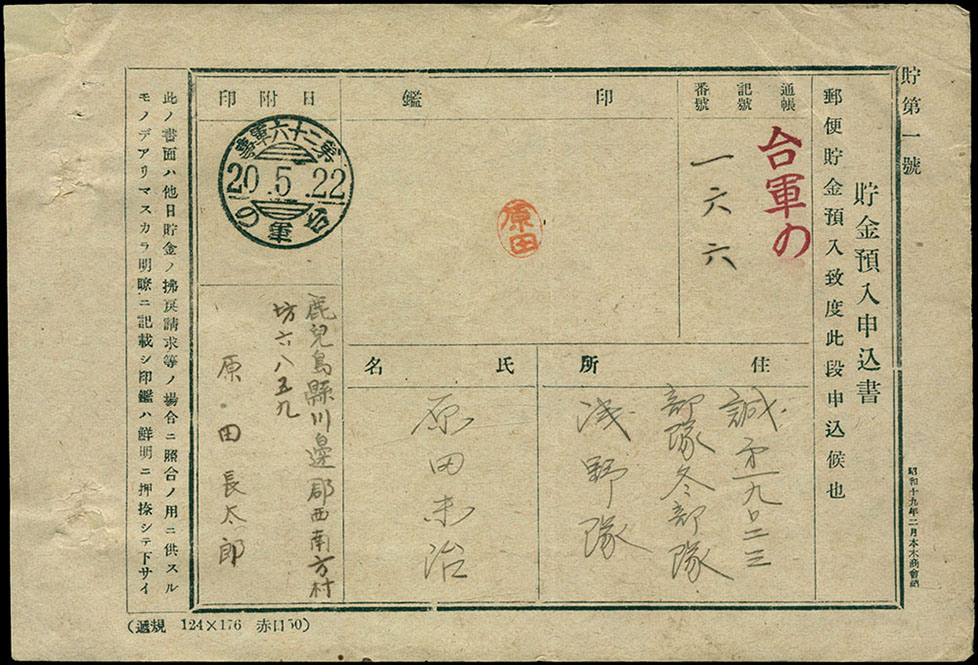 貯第一號
貯金預入申込書
郵便貯金預入致度此段申込候也
昭和十九年二月本木商會納
通帳
記號
番號
台軍の
一六六
印鑑
原田
日附印
第三十六軍事
20.5.22
台軍の
住所
誠 一九〇二三
部隊冬部隊
浅野隊
氏名
原田末治
鹿兒島縣川邊郡西南方村
坊六八五九
原田長太郎
此ノ書面ハ他日貯金ノ拂戾請求等ノ場合ニ照合ノ用ニ供スル
モノデアリマスカラ明瞭ニ記載シ印鑑ハ鮮明ニ押捺シテ下サイ
(遞規 124×176 赤口50)